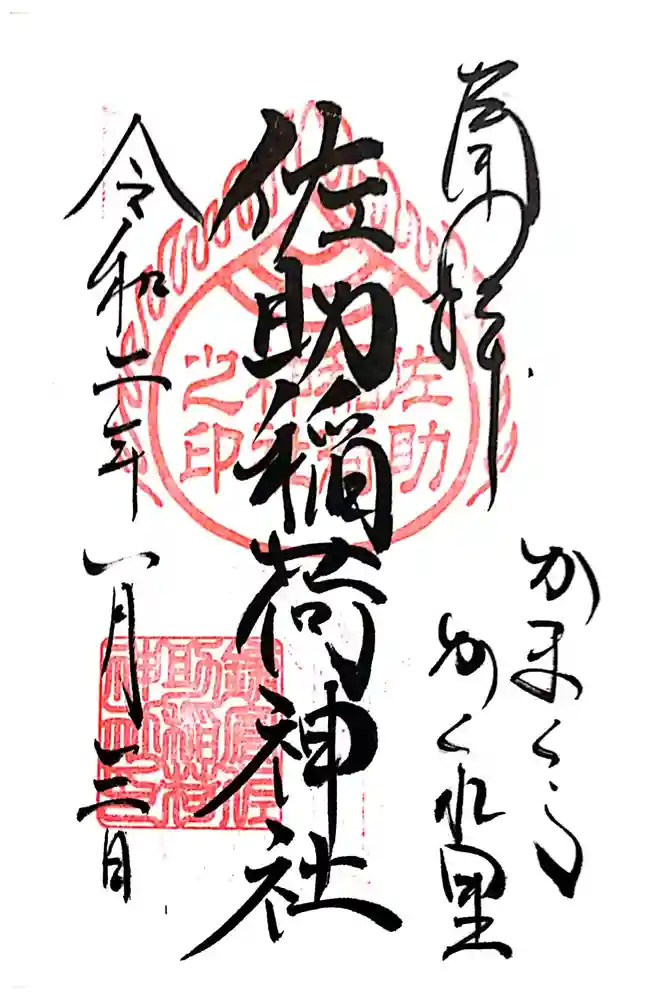 奉拝
かまくら
かくれ里
佐助稲荷神社
令和二年一月三日
佐助
稲荷
神社
之印
鎌倉佐
助稲荷